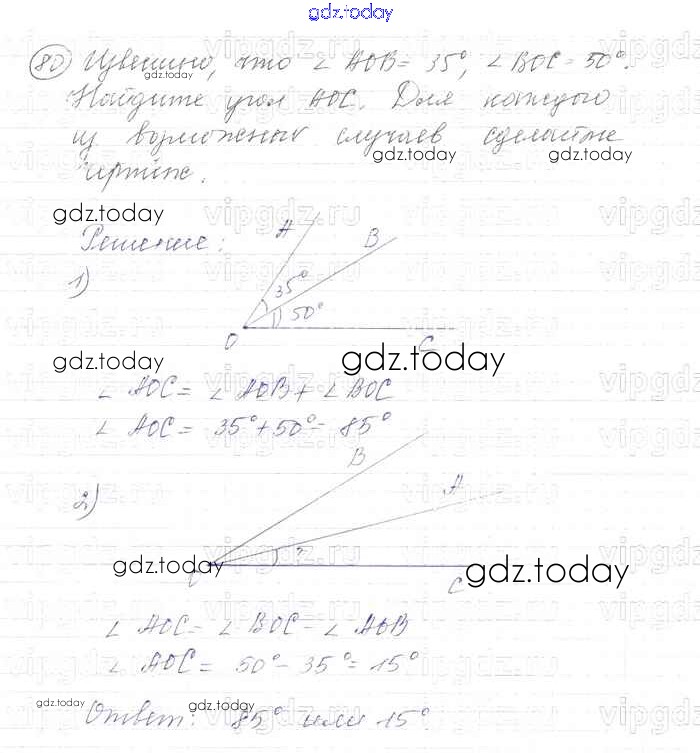 gdz.today
80 Известно, что ∠ AOB = 35°, ∠ BOC = 50°.
gdz.today
Найдите угол AOC. Для каждого
из возможных случаев сделайте
gdz.today gdz.today
чертёж.
gdz.today vipgdz.ru
Решение:
1)
A B
35°
50°
O C
gdz.today
gdz.today
∠ AOC = ∠ AOB + ∠ BOC
∠ AOC = 35° + 50° = 85°
2)
B
A
?
C
gdz.today
gdz.today
∠ AOC = ∠ BOC - ∠ AOB
∠ AOC = 50° - 35° = 15°
gdz.today gdz.today
Ответ: 85° или 15°